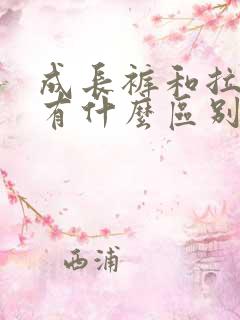 成長褲和拉
有什麼區別
西浦